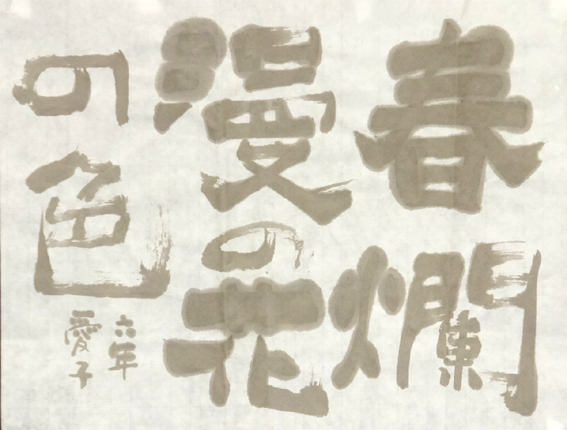 春爛
漫の花
の色
六年
愛子